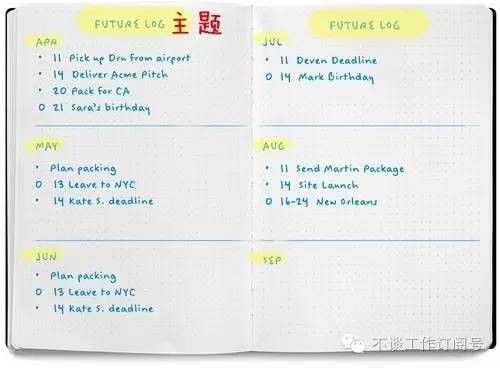 FUTURE LOG 主题
APR
• 11 Pick up Dru from airport
• 14 Deliver Acme Pitch
• 20 Pack for CA
O 21 Sara's birthday
MAY
• Plan packing
O 13 Leave to NYC
• 14 Kate S. deadline
JUN
• Plan packing
O 13 Leave to NYC
• 14 Kate S. deadline
FUTURE LOG
JUL
• 11 Deven Deadline
O 14 Mark Birthday
AUG
• 11 Send Martin Package
• 14 Site Launch
O 16-24 New Orleans
SEP
不谈工作订阅号